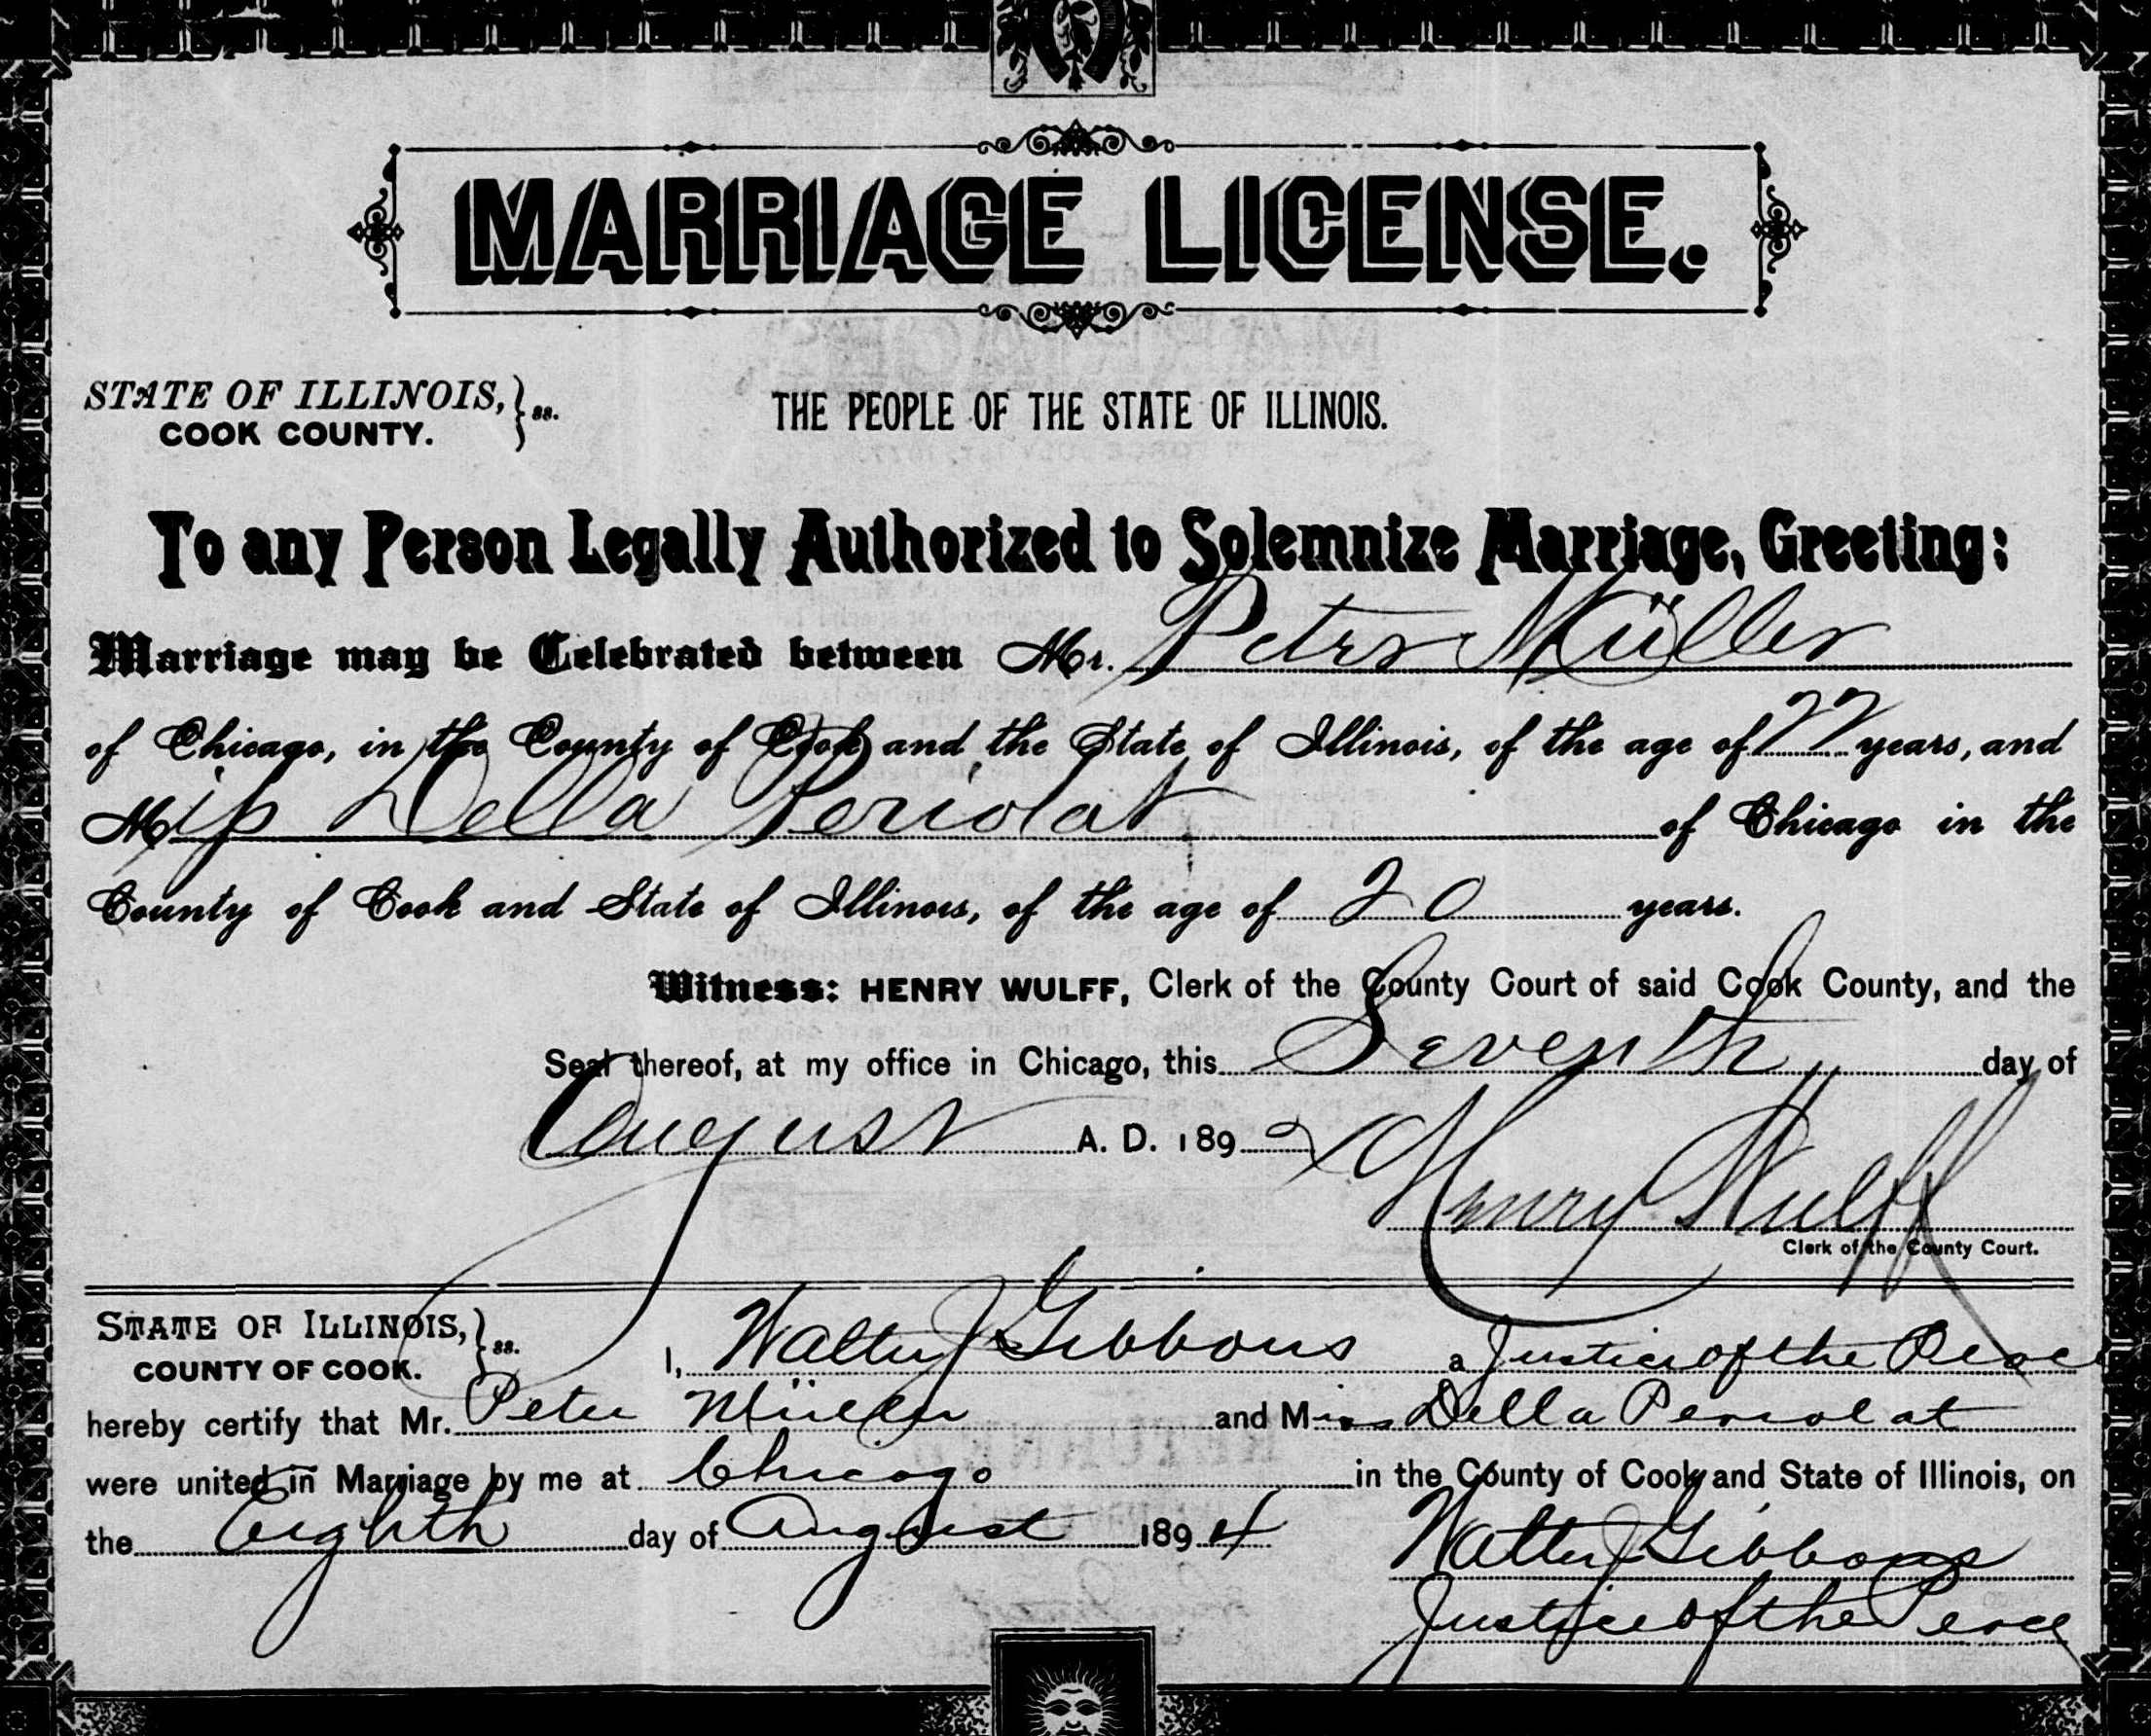 MARRIAGE LICENSE.
STATE OF ILLINOIS, } ss.
COOK COUNTY.
THE PEOPLE OF THE STATE OF ILLINOIS.
To any Person Legally Authorized to Solemnize Marriage, Greeting:
Marriage may be Celebrated between Mr. Peter Müller
of Chicago, in the County of Cook and the State of Illinois, of the age of 22 years, and
Miss Della Periolat of Chicago in the
County of Cook and State of Illinois, of the age of 20 years.
Witness: HENRY WULFF, Clerk of the County Court of said Cook County, and the
Seal thereof, at my office in Chicago, this Seventh day of
August A. D. 189
Henry Wulff
Clerk of the County Court.
STATE OF ILLINOIS, } ss.
COUNTY OF COOK.
I, Walter J Gibbons a Justice of the Peace
hereby certify that Mr. Peter Müller and Miss Della Periolat
were united in Marriage by me at Chicago in the County of Cook and State of Illinois, on
the Eighth day of August 1894
Walter J Gibbons
Justice of the Peace